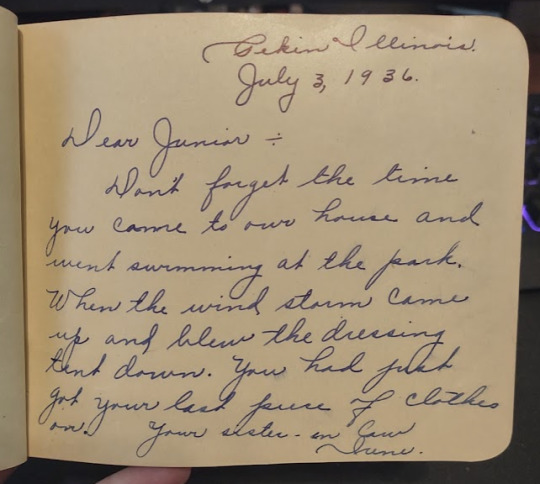 Pekin Illinois.
July 3, 1936.
Dear Junior ÷
Don't forget the time
you came to our house and
went swimming at the park.
When the wind storm came
up and blew the dressing
tent down. You had just
got your last piece of clothes
on. Your sister-in law
June.